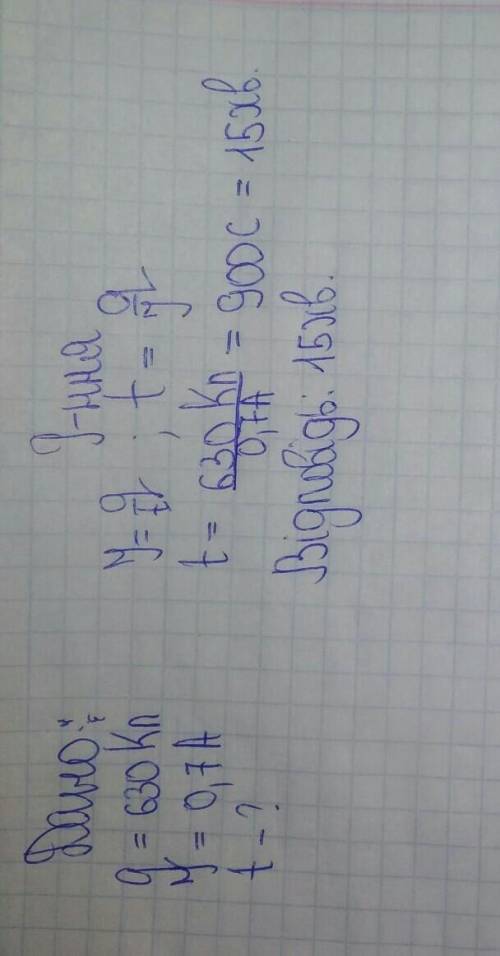 Дано:
q = 630 Кл
I = 0,7 А
t - ?
Р-ння
I = q/t ; t = q/I
t = 630 Кл/0,7 А = 900 с = 15 хв.
Відповідь: 15 хв.